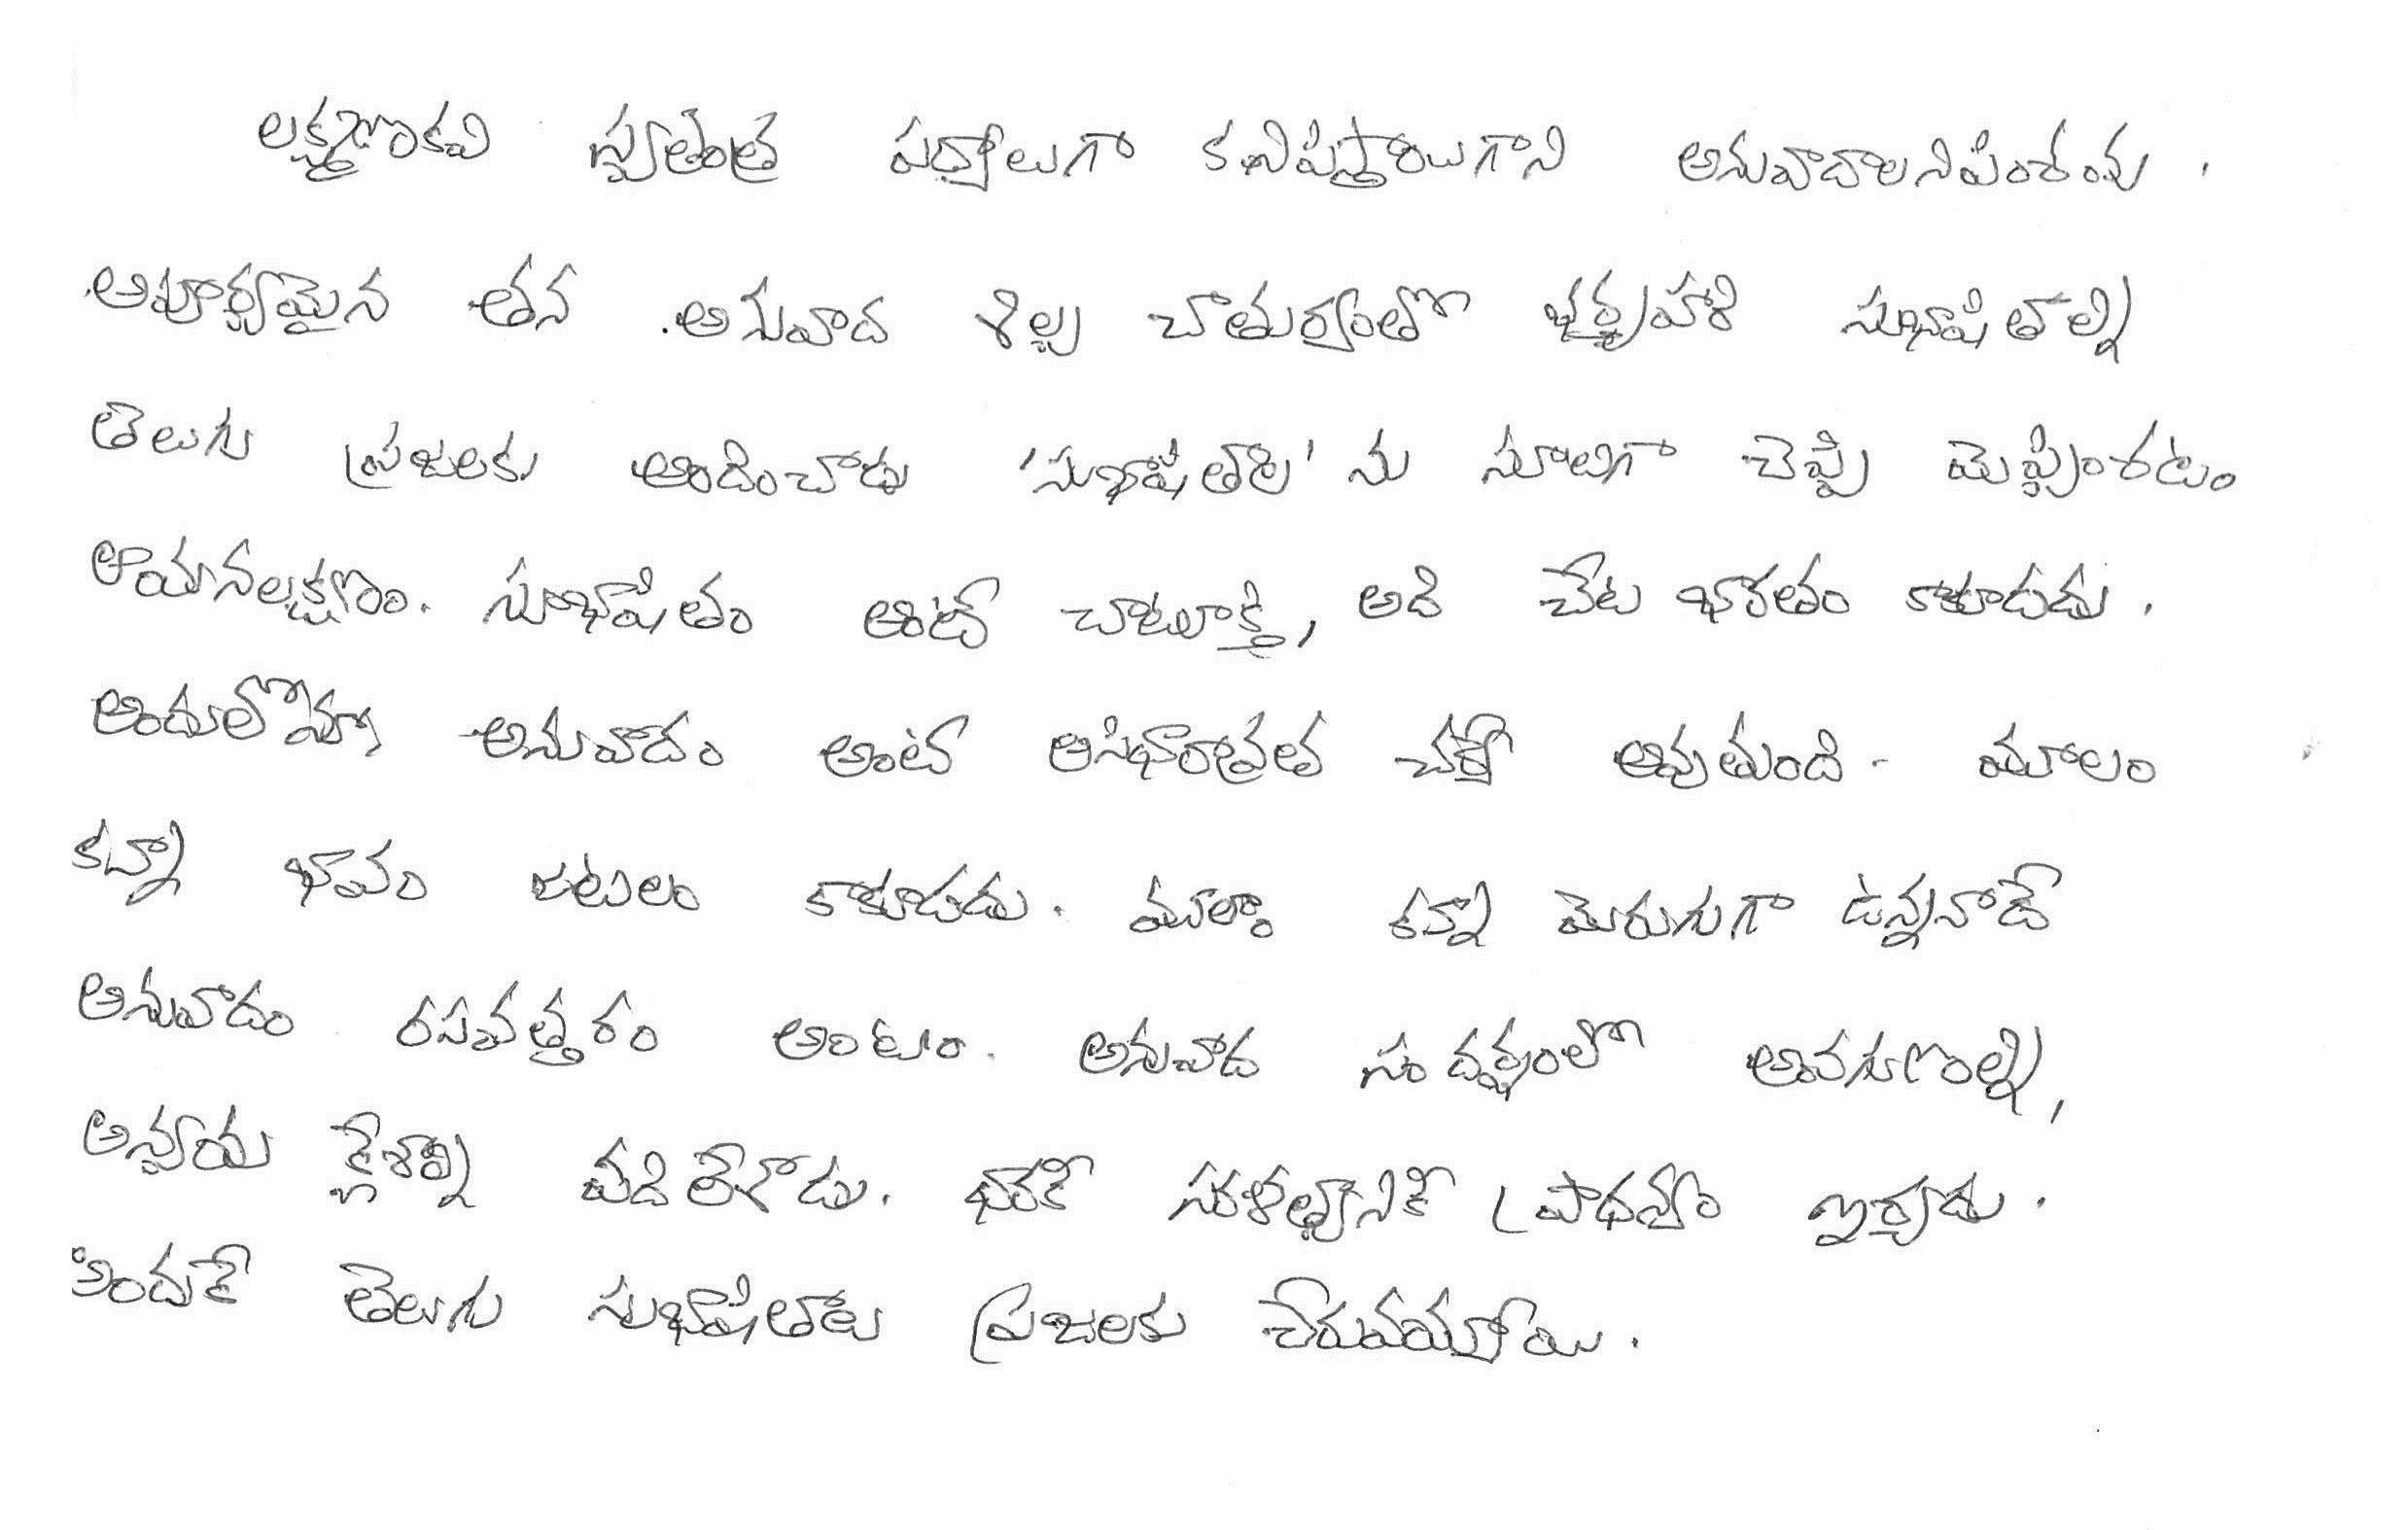 లక్ష్మణకవి స్వతంత్ర పద్యాలుగా కనిపిస్తాయిగాని అనువాదాలనిపించవు.
అపూర్వమైన తన అనువాద శిల్ప చాతుర్యంతో భర్తృహరి సుభాషితాల్ని
తెలుగు ప్రజలకు అందించాడు 'సుభాషితాల' ను సూటిగా చెప్పి మెప్పించటం
ఆయనలక్షణం. సుభాషితం అంటే చాటూక్తి, అది చేట భారతం కాకూడదు.
అందులోనూ అనువాదం అంటే అసిధారావ్రత చర్యే అవుతుంది. మూలం
కన్నా భావం జటిలం కాకూడదు. మూలం కన్నా మెరుగుగా ఉన్ననాడే
అనువాదం రసవత్తరం అంటాం. అనువాద సందర్భంలో అవగుణాల్ని,
అన్వయ క్లేశాల్ని వదిలేశాడు. భాషకి సరళత్వానికి ప్రాధాన్యం ఇచ్చాడు.
అందుకే తెలుగు సుభాషితాలు ప్రజలకు చేరువయ్యాయి.